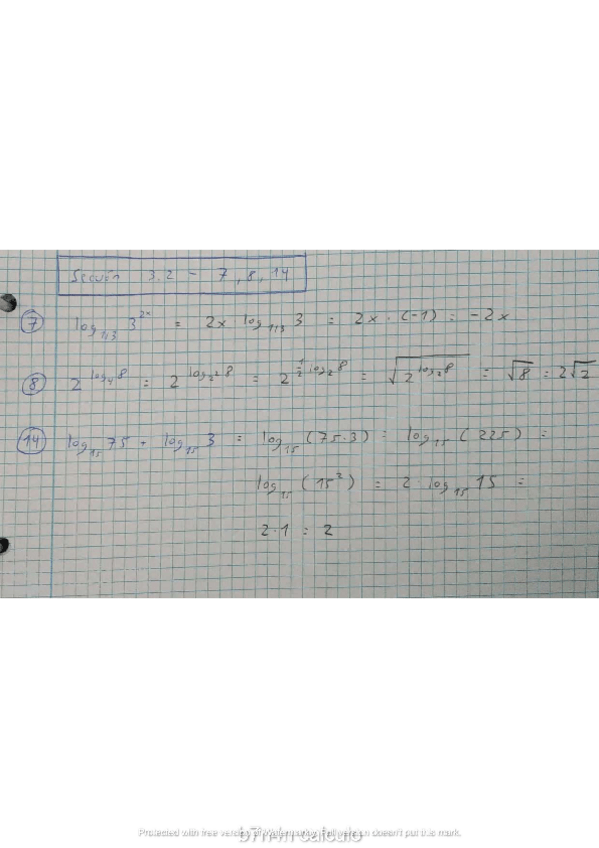 Sección 3.2 - 7, 8, 14
7 log_{1/3} 3^{2x} = 2x · log_{1/3} 3 = 2x · (-1) = -2x
8 2^{log_4 8} = 2^{log_{2^2} 8} = 2^{\frac{1}{2} log_2 8} = \sqrt{2^{log_2 8}} = \sqrt{8} = 2\sqrt{2}
14 log_{15} 75 + log_{15} 3 = log_{15} (75·3) = log_{15} (225) =
log_{15} (15^2) = 2 · log_{15} 15 =
2·1 = 2
Protected with free version of Watermarkly. Full version doesn't put this mark.